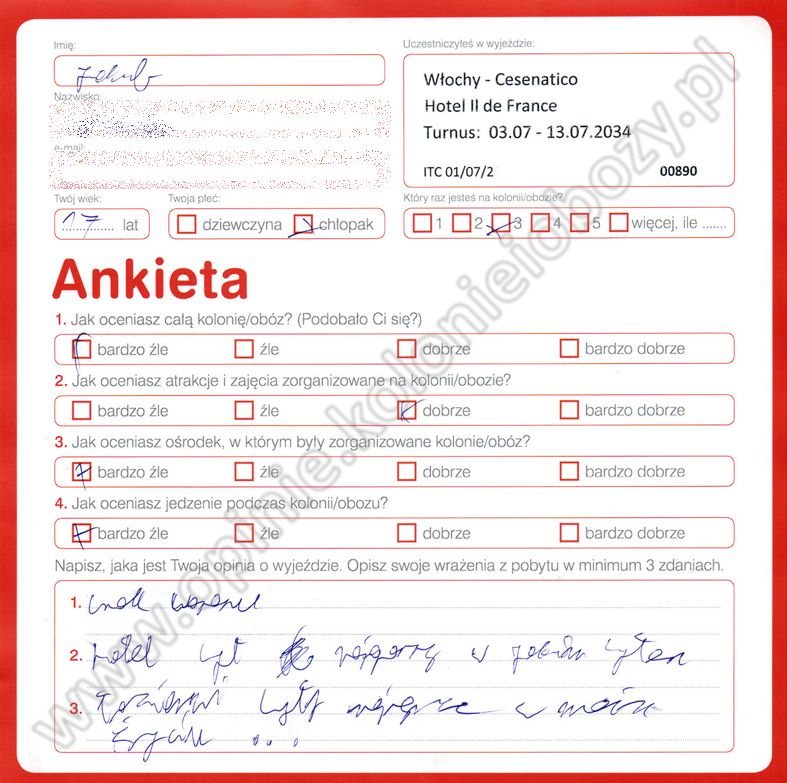 Imię:
Jakub
Uczestniczyłeś w wyjeździe:
Włochy - Cesenatico
Hotel Il de France
Turnus: 03.07 - 13.07.2034
ITC 01/07/2 00890
Nazwisko:
e-mail:
Twój wiek:
17 lat
Twoja płeć:
dziewczyna chłopak
Który raz jesteś na kolonii/obozie?
1 2 3 4 5 więcej, ile .......
Ankieta
1. Jak oceniasz całą kolonię/obóz? (Podobało Ci się?)
bardzo źle źle dobrze bardzo dobrze
2. Jak oceniasz atrakcje i zajęcia zorganizowane na kolonii/obozie?
bardzo źle źle dobrze bardzo dobrze
3. Jak oceniasz ośrodek, w którym były zorganizowane kolonie/obóz?
bardzo źle źle dobrze bardzo dobrze
4. Jak oceniasz jedzenie podczas kolonii/obozu?
bardzo źle źle dobrze bardzo dobrze
Napisz, jaka jest Twoja opinia o wyjeździe. Opisz swoje wrażenia z pobytu w minimum 3 zdaniach.
1.
2. hotel był najgorszy w jakim byłem
3. były najgorsze w moim
życiu ...
www.opinie.kolonieiobozy.pl